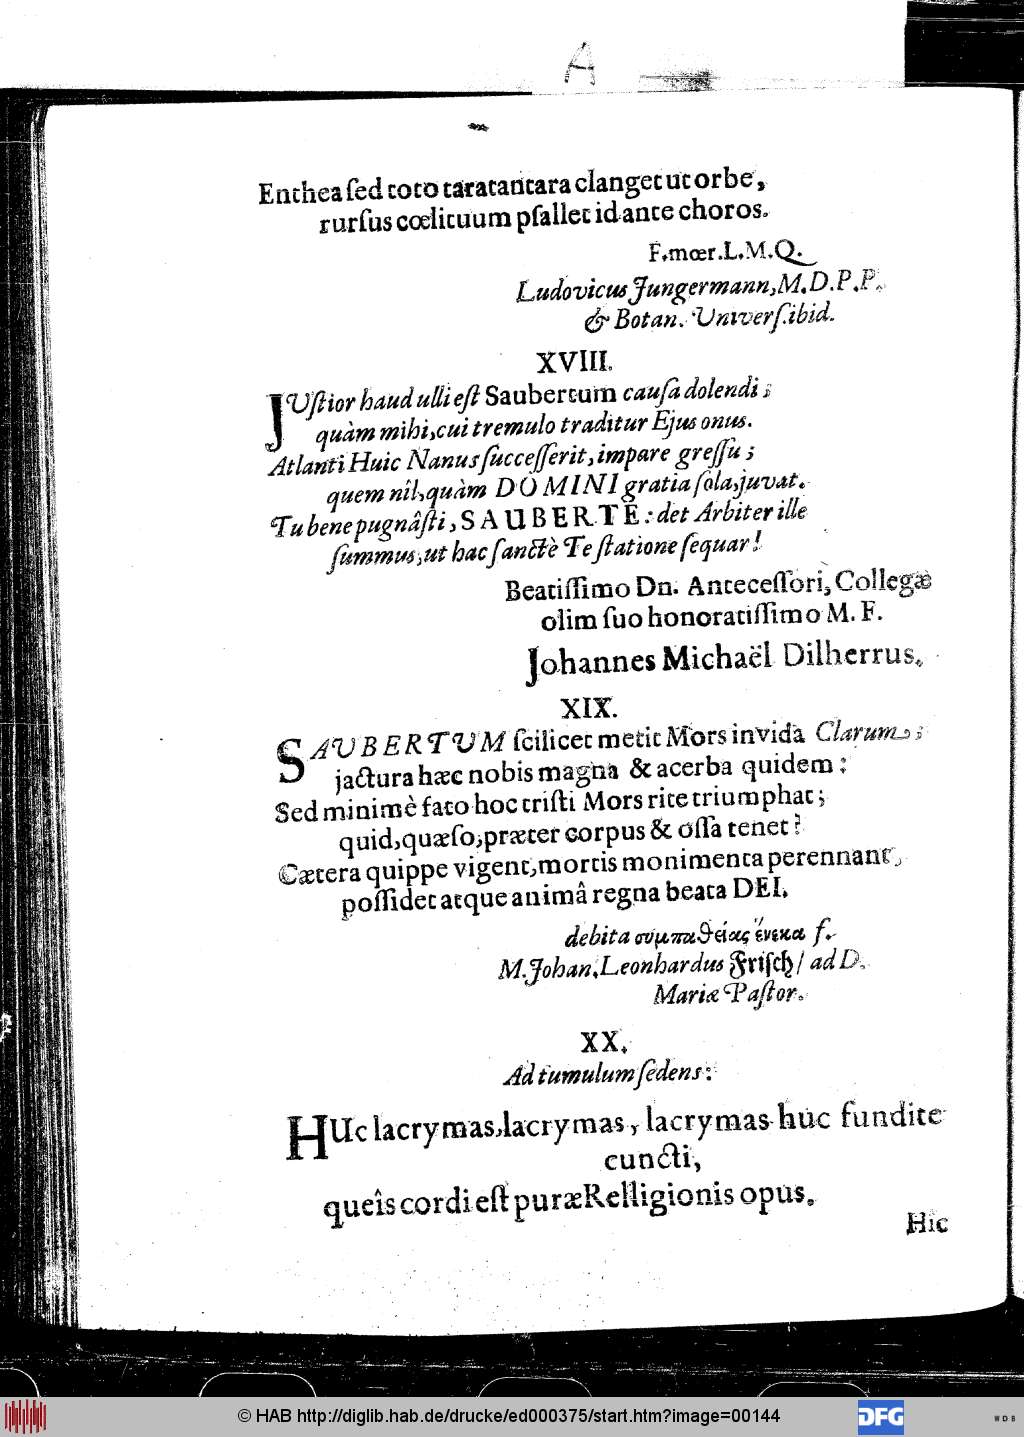 A
Enthea ſed toto taratantara clanget ut orbe,
rurſus cœlituum pſallet id ante choros.
F. mœr. L. M. Q.
Ludovicus Jungermann, M. D. P. P.
& Botan. Univerſ. ibid.
XVIII.
JUſtior haud ulli eſt Saubertum cauſa dolendi;
quàm mihi, cui tremulo traditur Ejus onus.
Atlanti Huic Nanus ſucceſſerit, impare greſſu;
quem nîl, quàm DOMINI gratia ſola, juvat.
Tu bene pugnâſti, SAUBERTE: det Arbiter ille
ſummus, ut hac ſanctè Te ſtatione ſequar!
Beatiſſimo Dn. Anteceſſori, Collegæ
olim ſuo honoratiſſimo M. F.
Johannes Michaël Dilherrus.
XIX.
SAUBERTUM ſcilicet metit Mors invida Clarum;
jactura hæc nobis magna & acerba quidem:
Sed minimè fato hoc triſti Mors rite triumphat;
quid, quæſo, præter corpus & oſſa tenet?
Cætera quippe vigent, mortis monimenta perennant,
poſſidet atque animâ regna beata DEI.
debita συμπαθείας ἕνεκα f.
M. Johan. Leonhardus Friſch / ad D.
Mariæ Paſtor.
XX.
Ad tumulum ſedens:
HUc lacrymas, lacrymas, lacrymas huc fundite
cuncti,
queîs cordi eſt puræ Relligionis opus.
Hic
© HAB http://diglib.hab.de/drucke/ed000375/start.htm?image=00144
DFG
WDB